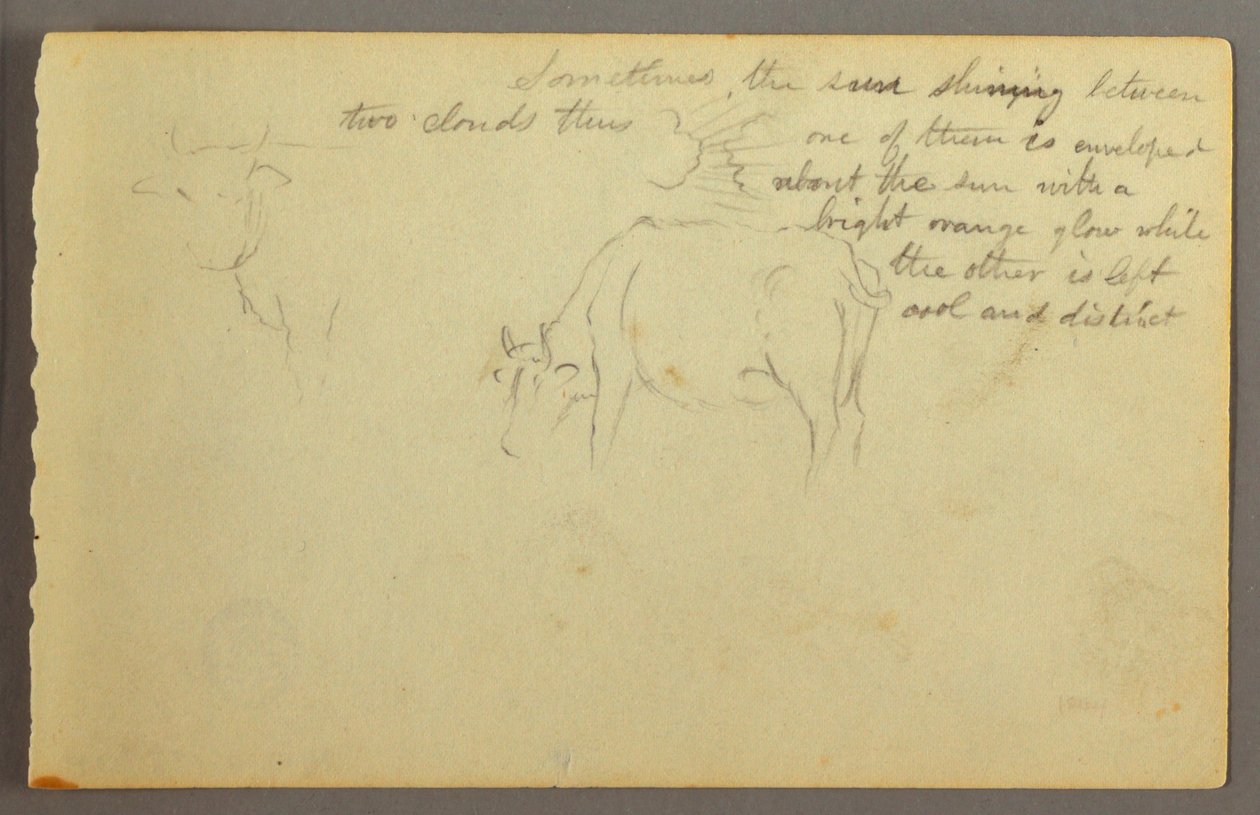 Sometimes, the sun shining between
two clouds thus
one of them is enveloped
about the sun with a
bright orange glow while
the other is left
cool and distinct